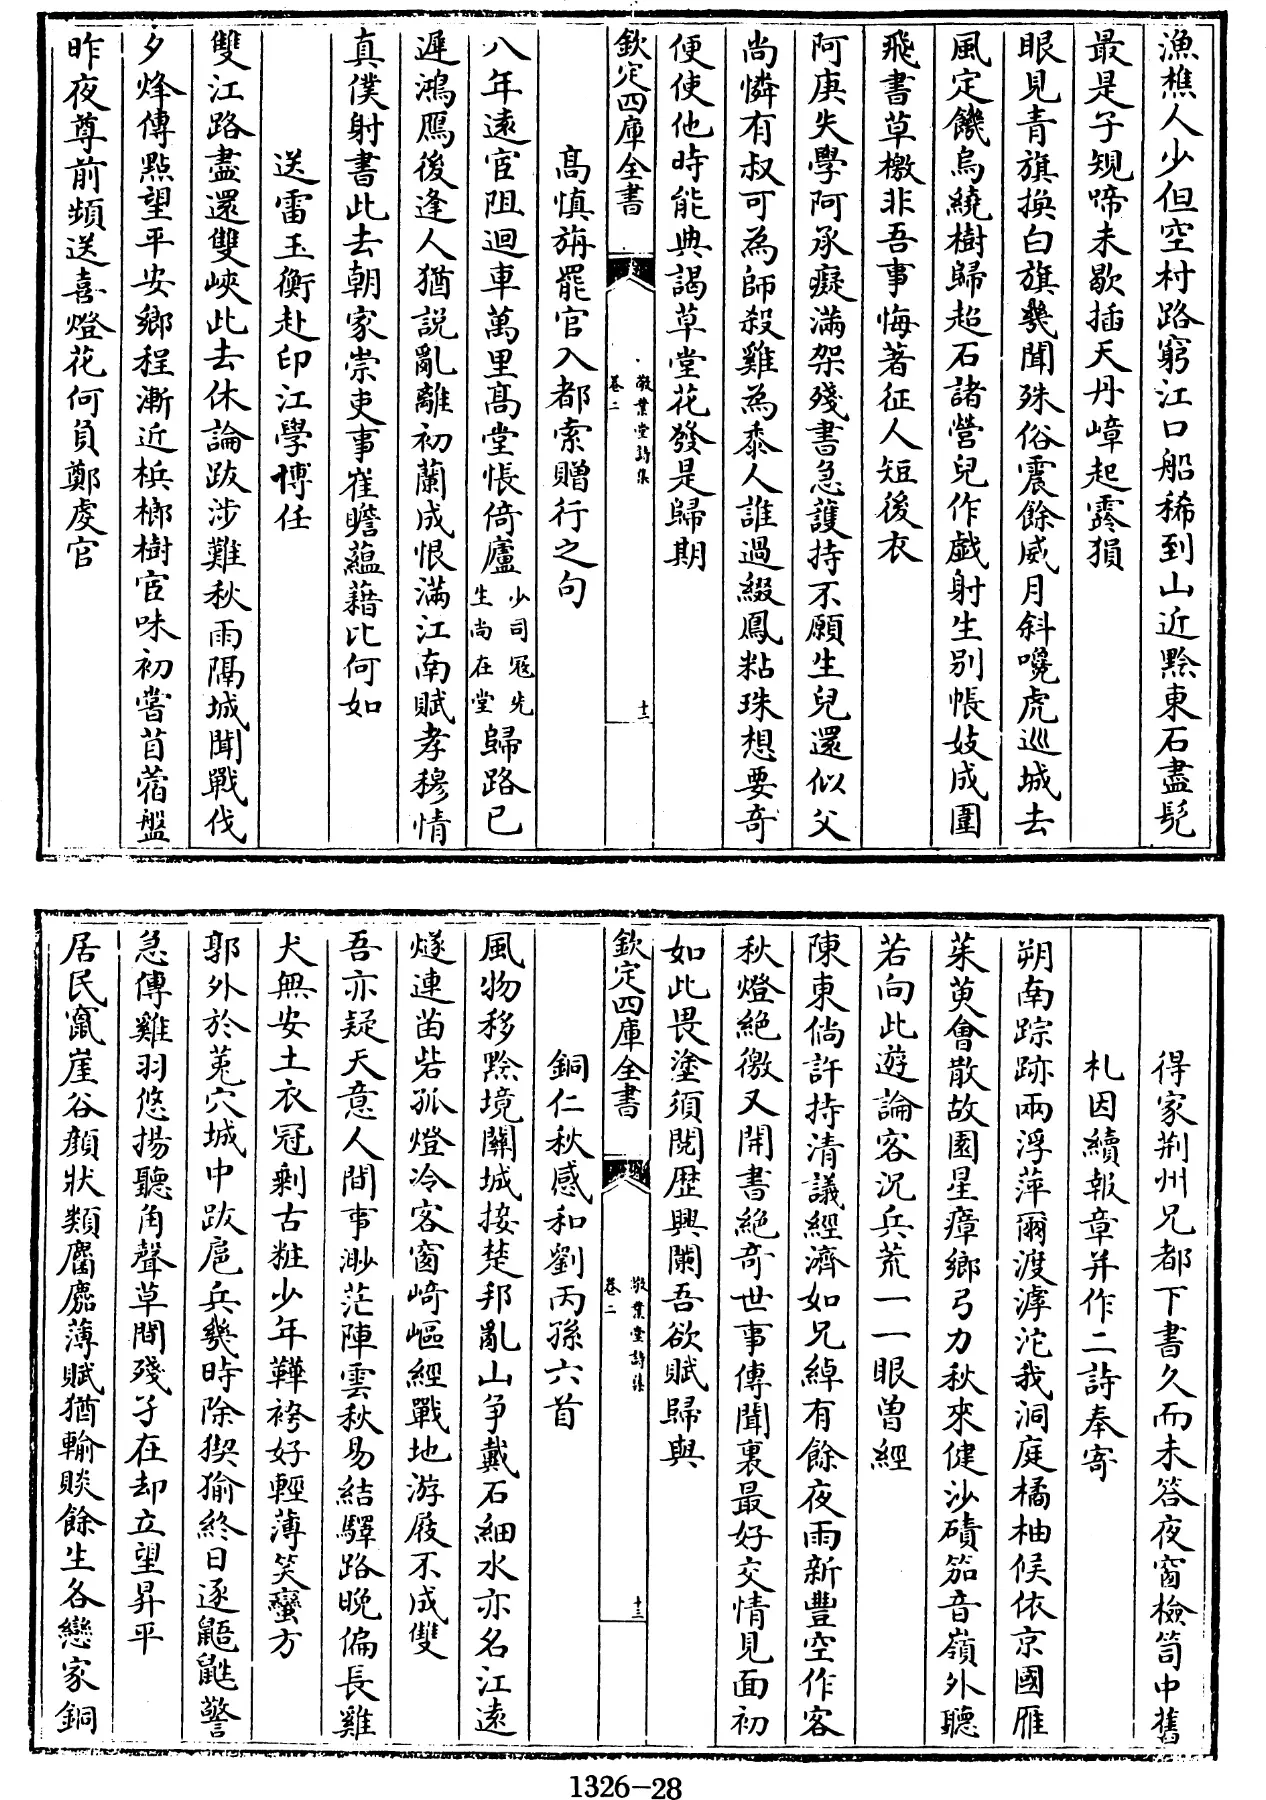 漁樵人少但空村路窮江口船稀到山近黔東石盡髡
最是子規啼未歇插天丹嶂起霧猿
眼見青旗換白旗幾聞殊俗震餘威月斜嚵虎巡城去
風定饑烏繞樹歸超石諸營兒作戯射生別帳妓成圍
飛書草檄非吾事悔著征人短後衣
阿庚失學阿承癡滿架殘書急護持不願生兒還似父
尚憐有叔可為師殺雞為黍人誰過綴鳳粘珠想要奇
便使他時能典謁草堂花發是歸期
欽定四庫全書
敬業堂詩集
卷二
十二
高慎旃罷官入都索贈行之句
八年遠宦阻迴車萬里高堂悵倚廬
少司冦先
生尚在堂
歸路已
遲鴻鴈後逢人猶說亂離初蘭成恨滿江南賦孝穆情
真僕射書此去朝家崇吏事崔瞻蘊藉比何如
送雷玉衡赴印江學博任
雙江路盡還雙峽此去休論跋涉難秋雨隔城聞戰伐
夕烽傳點望平安鄉程漸近梹榔樹宦味初嘗苜蓿盤
昨夜尊前頻送喜燈花何負鄭虔官
得家荆州兄都下書久而未答夜窗檢笥中舊
札因續報章并作二詩奉寄
朔南踪跡兩浮萍爾渡滹沱我洞庭橘柚候依京國雁
茱萸會散故園星瘴鄉弓力秋來健沙磧笳音嶺外聽
若向此遊論客況兵荒一一眼曾經
陳東倘許持清議經濟如兄綽有餘夜雨新豐空作客
秋燈絶徼又開書絶奇世事傳聞裏最好交情見面初
如此畏塗須閲歴興闌吾欲賦歸與
欽定四庫全書
敬業堂詩集
卷二
十三
銅仁秋感和劉丙孫六首
風物移黔境關城接楚邦亂山争戴石細水亦名江遠
燧連苗砦孤燈冷客窗崎嶇經戰地游屐不成雙
吾亦疑天意人間事渺茫陣雲秋易結驛路晩偏長雞
犬無安土衣冠剩古粧少年鞾袴好輕薄笑蠻方
郭外於菟穴城中跋扈兵幾時除猰㺄終日逐鼯鼪警
急傳雞羽悠揚聽角聲草間殘孑在却立望昇平
居民竄崖谷顔狀類麕麚薄賦猶輸賧餘生各戀家銅
1326-28